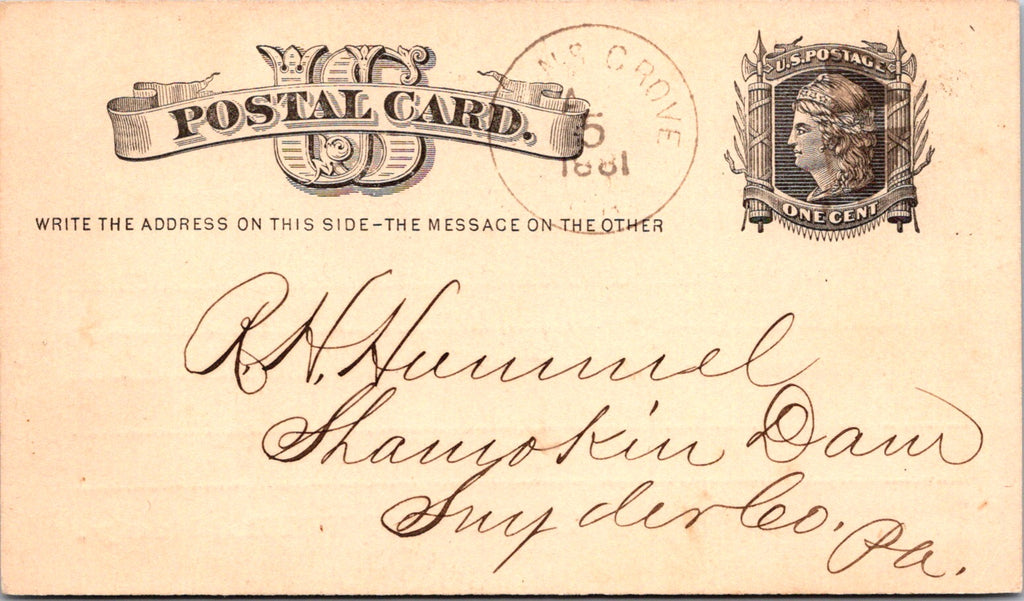 US
POSTAL CARD.
WRITE THE ADDRESS ON THIS SIDE-THE MESSAGE ON THE OTHER
NS GROVE
5
1881
U.S. POSTAGE
ONE CENT
R. H. Hummel
Shamokin Dam
Snyder Co. Pa.